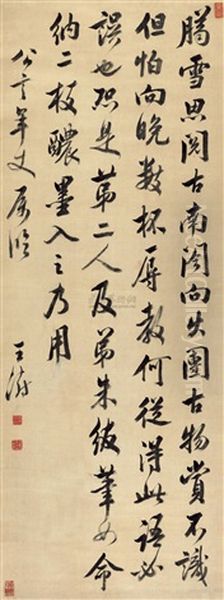 臈雪思閱古南閣向失團古物賞不識
但怕向晚數杯辱教何從得此語必
誤也恐是第二人及弟朱紱筆如命
納二枝醲墨入之乃用
公言年丈屬臨
王澍